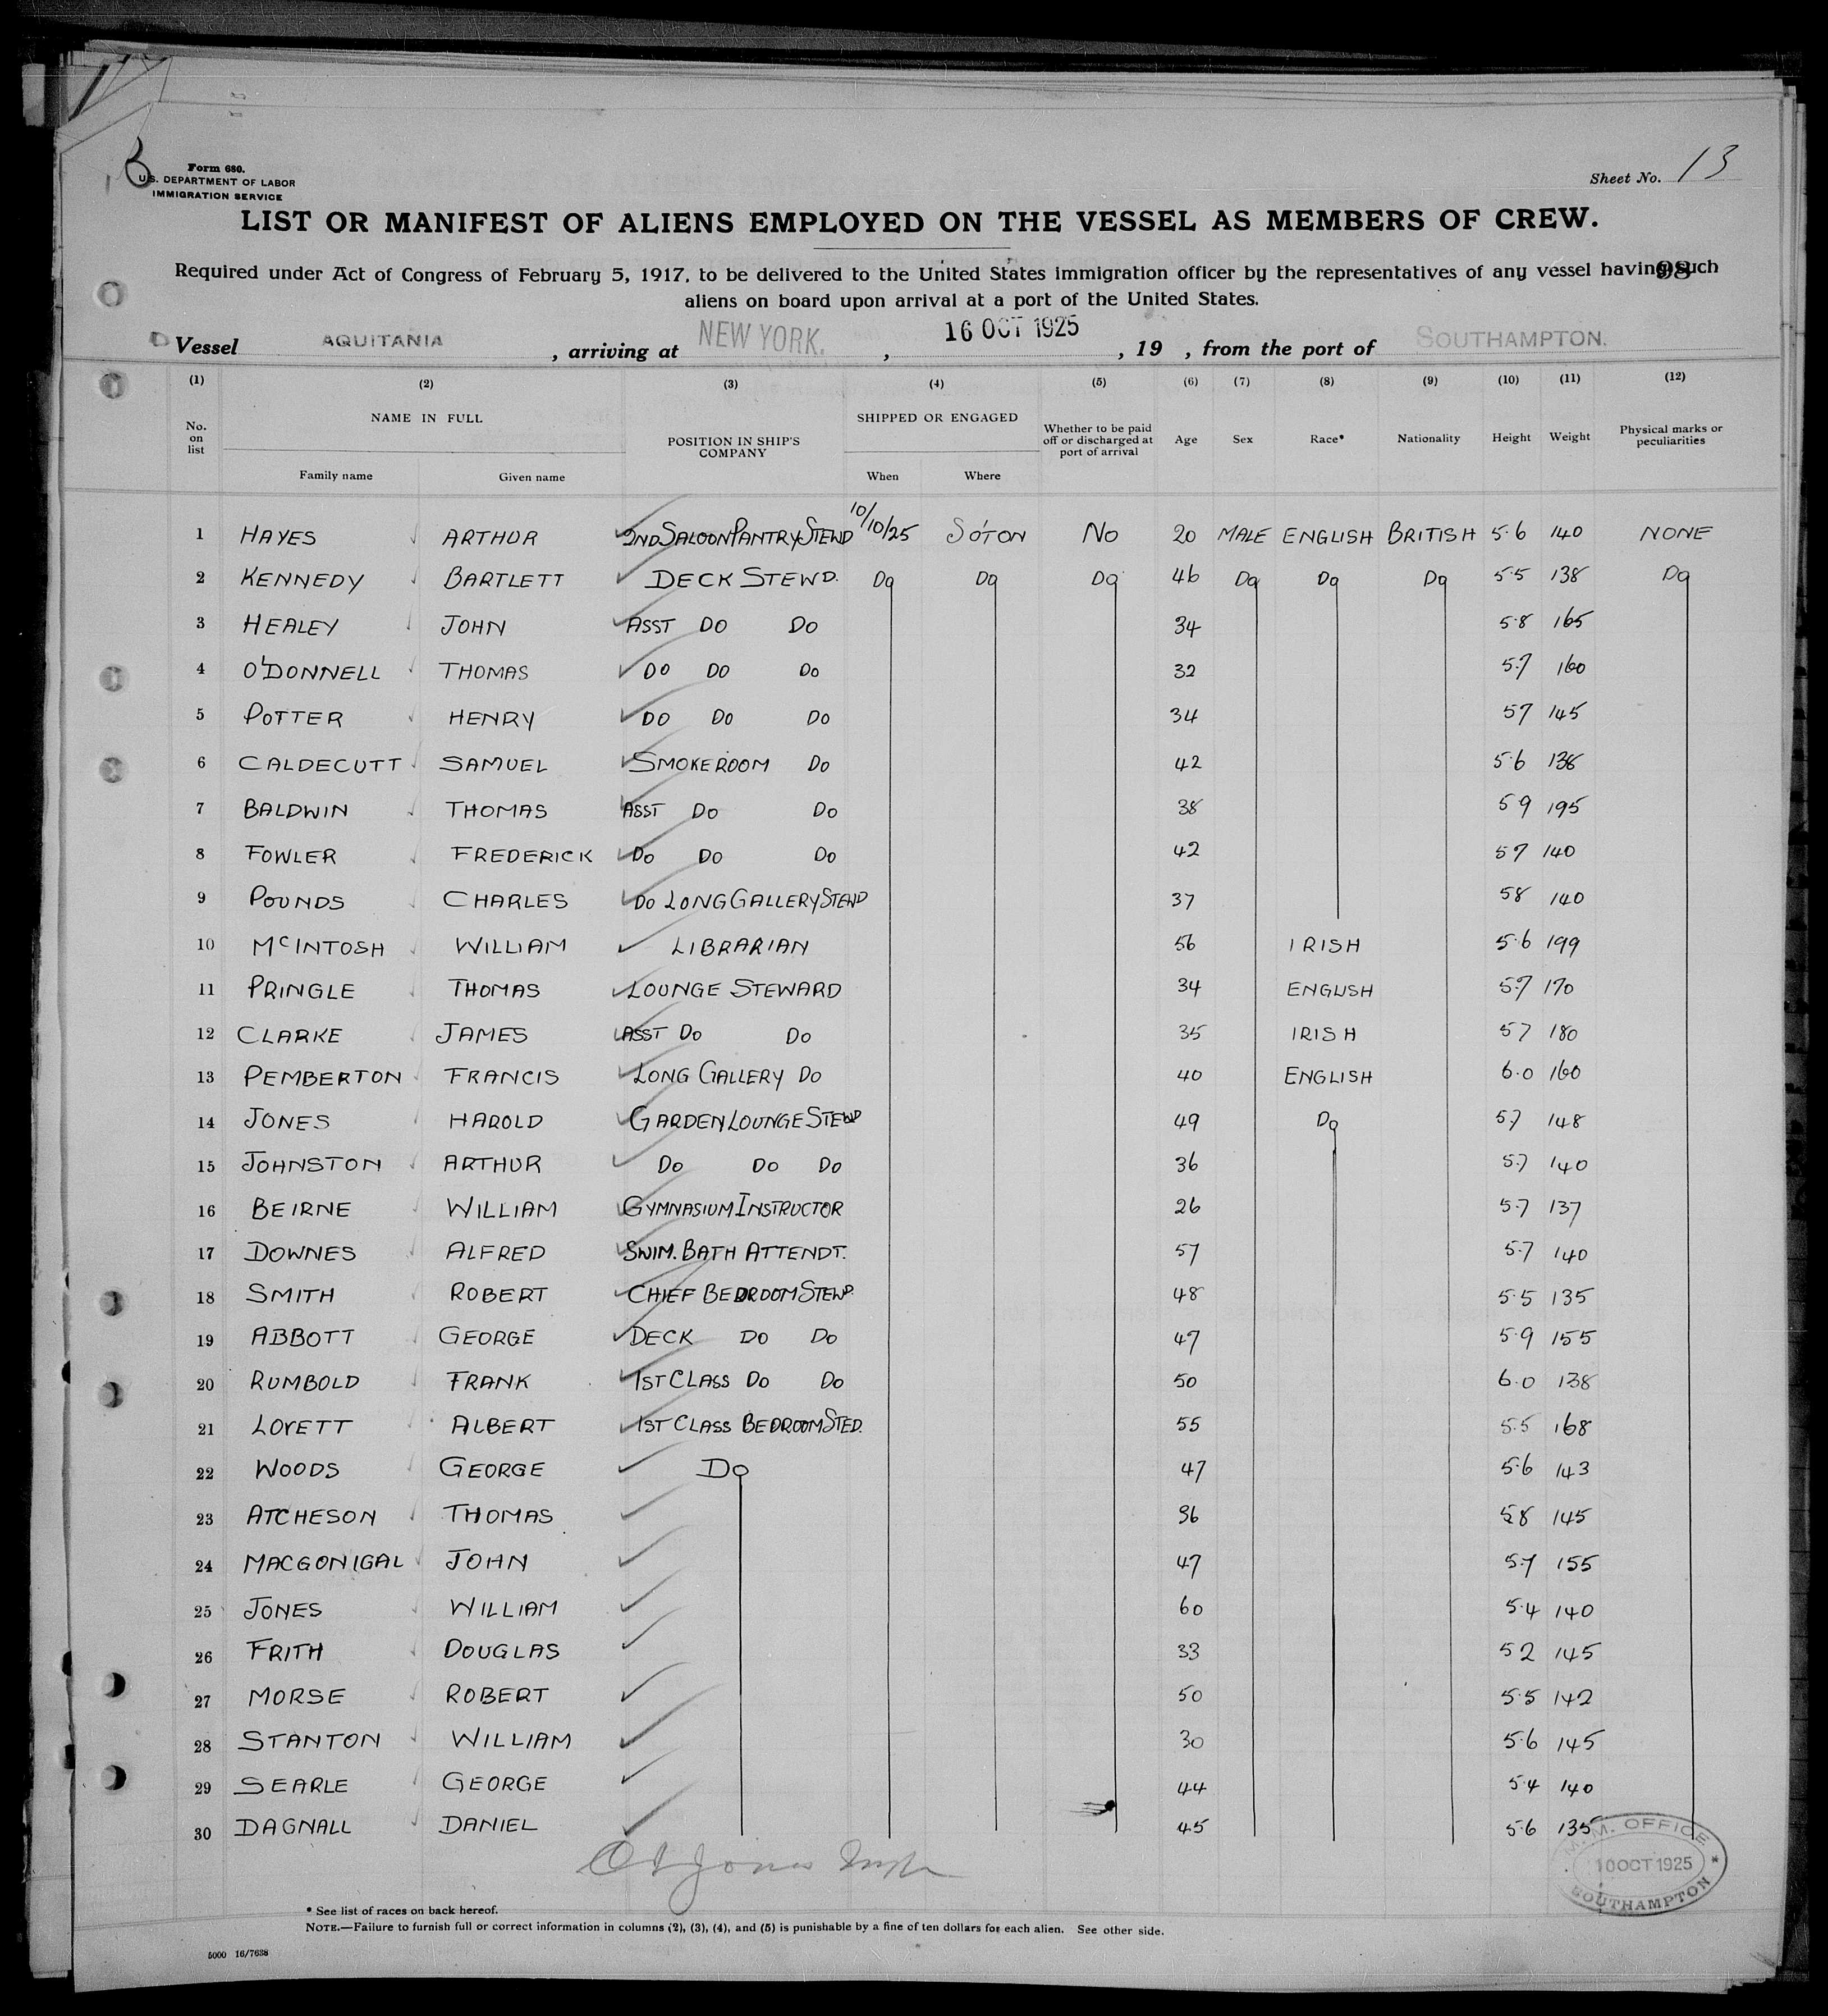 B
Form 680.
U.S. DEPARTMENT OF LABOR
IMMIGRATION SERVICE
Sheet No. 13
LIST OR MANIFEST OF ALIENS EMPLOYED ON THE VESSEL AS MEMBERS OF CREW.
Required under Act of Congress of February 5, 1917, to be delivered to the United States immigration officer by the representatives of any vessel having such
98
aliens on board upon arrival at a port of the United States.
Vessel AQUITANIA, arriving at NEW YORK., 16 OCT 1925, 19 , from the port of SOUTHAMPTON.
(1) (2) (3) (4) (5) (6) (7) (8) (9) (10) (11) (12)
No. on list NAME IN FULL POSITION IN SHIP'S COMPANY SHIPPED OR ENGAGED Whether to be paid off or discharged at port of arrival Age Sex Race* Nationality Height Weight Physical marks or peculiarities
Family name Given name When Where
1 HAYES ARTHUR 2ND SALOON PANTRY STEWD 10/10/25 SO'TON NO 20 MALE ENGLISH BRITISH 5.6 140 NONE
2 KENNEDY BARTLETT DECK STEWD. DO DO DO 46 DO DO DO 5.5 138 DO
3 HEALEY JOHN ASST DO DO 34 5.8 165
4 O'DONNELL THOMAS DO DO DO 32 5.7 160
5 POTTER HENRY DO DO DO 34 57 145
6 CALDECUTT SAMUEL SMOKEROOM DO 42 5.6 138
7 BALDWIN THOMAS ASST DO DO 38 59 195
8 FOWLER FREDERICK DO DO DO 42 57 140
9 POUNDS CHARLES DO LONG GALLERY STEWD 37 58 140
10 McINTOSH WILLIAM LIBRARIAN 56 IRISH 5.6 199
11 PRINGLE THOMAS LOUNGE STEWARD 34 ENGLISH 5.7 170
12 CLARKE JAMES ASST DO DO 35 IRISH 57 180
13 PEMBERTON FRANCIS LONG GALLERY DO 40 ENGLISH 6.0 160
14 JONES HAROLD GARDEN LOUNGE STEWD 49 DO 57 148
15 JOHNSTON ARTHUR DO DO DO 36 5.7 140
16 BEIRNE WILLIAM GYMNASIUM INSTRUCTOR 26 5.7 137
17 DOWNES ALFRED SWIM. BATH ATTENDT. 57 5.7 140
18 SMITH ROBERT CHIEF BEDROOM STEWD. 48 5.5 135
19 ABBOTT GEORGE DECK DO DO 47 5.9 155
20 RUMBOLD FRANK 1ST CLASS DO DO 50 6.0 138
21 LOVETT ALBERT 1ST CLASS BEDROOM STED. 55 5.5 168
22 WOODS GEORGE DO 47 5.6 143
23 ATCHESON THOMAS 36 5.8 145
24 MACGONIGAL JOHN 47 5.7 155
25 JONES WILLIAM 60 5.4 140
26 FRITH DOUGLAS 33 52 145
27 MORSE ROBERT 50 5.5 142
28 STANTON WILLIAM 30 5.6 145
29 SEARLE GEORGE 44 5.4 140
30 DAGNALL DANIEL 45 5.6 135
Jones
M.M. OFFICE
10 OCT 1925
SOUTHAMPTON
* See list of races on back hereof.
NOTE.—Failure to furnish full or correct information in columns (2), (3), (4), and (5) is punishable by a fine of ten dollars for each alien. See other side.
5000 16/7638